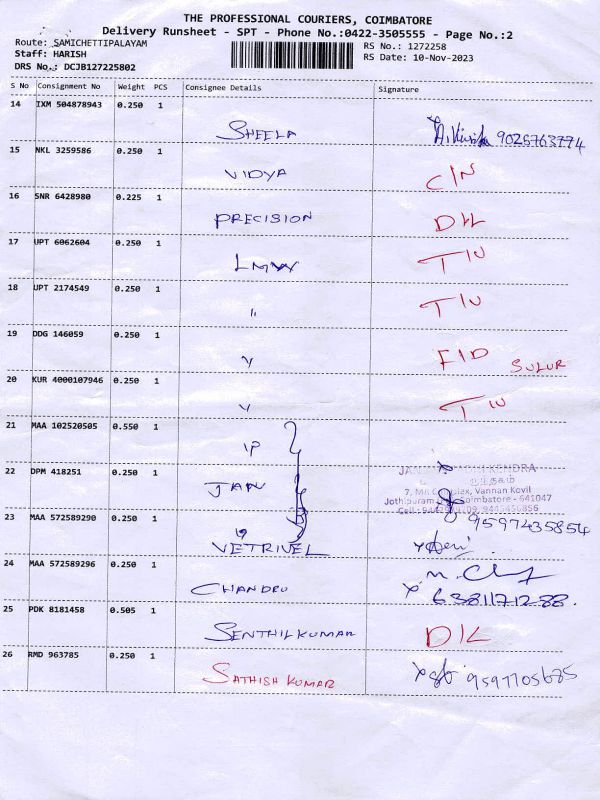 THE PROFESSIONAL COURIERS, COIMBATORE
Delivery Runsheet - SPT - Phone No.:0422-3505555 - Page No.:2
Route: SAMICHETTIPALAYAM
Staff: HARISH
DRS No.: DCJB127225802
RS No.: 1272258
RS Date: 10-Nov-2023
S No Consignment No Weight PCS Consignee Details Signature
14 IXM 504878943 0.250 1
SHEELA 9026763774
15 NKL 3259586 0.250 1
VIDYA C/N
16 SNR 6428980 0.225 1
PRECISION D/L
17 UPT 6062604 0.250 1
T/U
18 UPT 2174549 0.250 1
" T/U
19 DDG 146059 0.250 1
F/D SULUR
20 KUR 4000107946 0.250 1
T/U
21 MAA 102520505 0.550 1
IP
22 DPM 418251 0.250 1
JAN KENDRA
Vannan Kovil
Coimbatore - 641047
23 MAA 572589290 0.250 1
9597435854
VETRIVEL
24 MAA 572589296 0.250 1
CHANDRU
6381171288.
25 PDK 8181458 0.505 1
SENTHILKUMAR D/L
26 RMD 963785 0.250 1
SATHISH KUMAR 9597705685